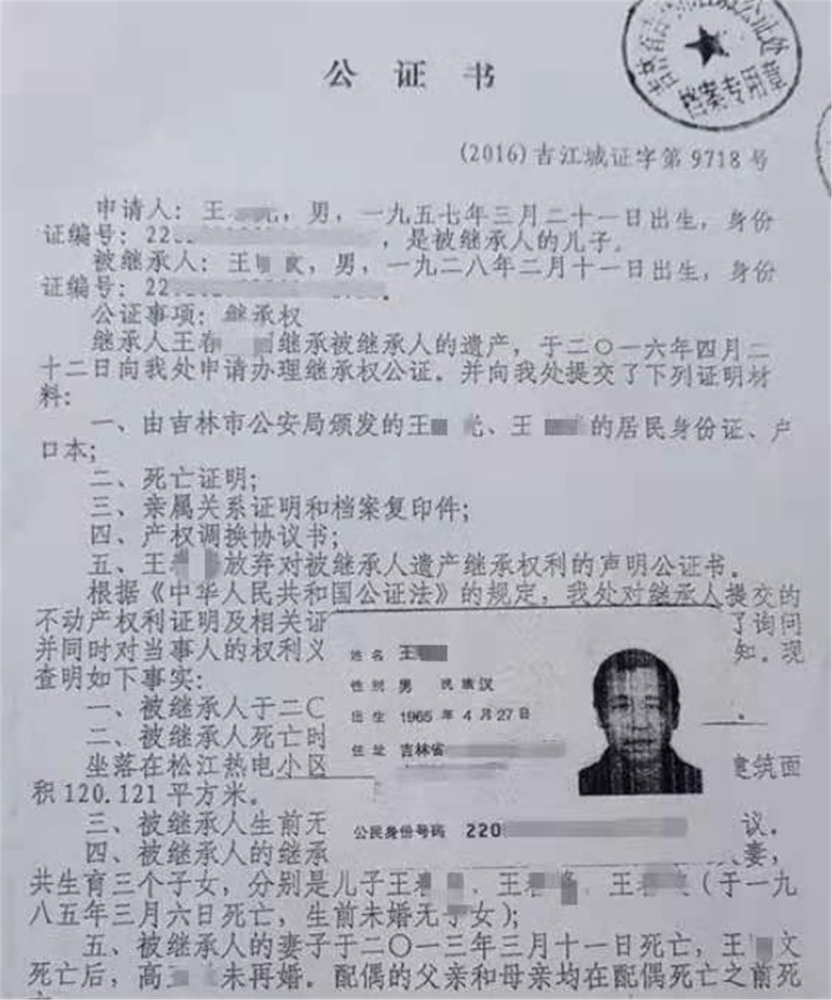 档案专用章
公证书
(2016)吉江城证字第9718号
申请人：王 ，男，一九五七年三月二十一日出生，身份
证编号：22 ，是被继承人的儿子。
被继承人：王 文，男，一九二八年二月十一日出生，身份
证编号：22 。
公证事项：继承权
继承人王春 继承被继承人的遗产，于二〇一六年四月二
十二日向我处申请办理继承权公证。并向我处提交了下列证明材
料：
一、由吉林市公安局颁发的王 、王 的居民身份证、户
口本；
二、死亡证明；
三、亲属关系证明和档案复印件；
四、产权调换协议书；
五、王 放弃对被继承人遗产继承权利的声明公证书。
根据《中华人民共和国公证法》的规定，我处对继承人提交的
不动产权利证明及相关证 了询问
并同时对当事人的权利义 知。现
查明如下事实：
一、被继承人于二〇
二、被继承人死亡时
坐落在松江热电小区 建筑面
积120.121平方米。
三、被继承人生前无 议。
四、被继承人的继承 妻，
姓名 王
性别 男 民族汉
出生 1965年4月27日
住址 吉林省
公民身份号码 220
共生育三个子女，分别是儿子王 、王 、王 （于一九
八五年三月六日死亡，生前未婚无子女）；
五、被继承人的妻子于二〇一三年三月十一日死亡，王 文
死亡后，高 未再婚。配偶的父亲和母亲均在配偶死亡之前死